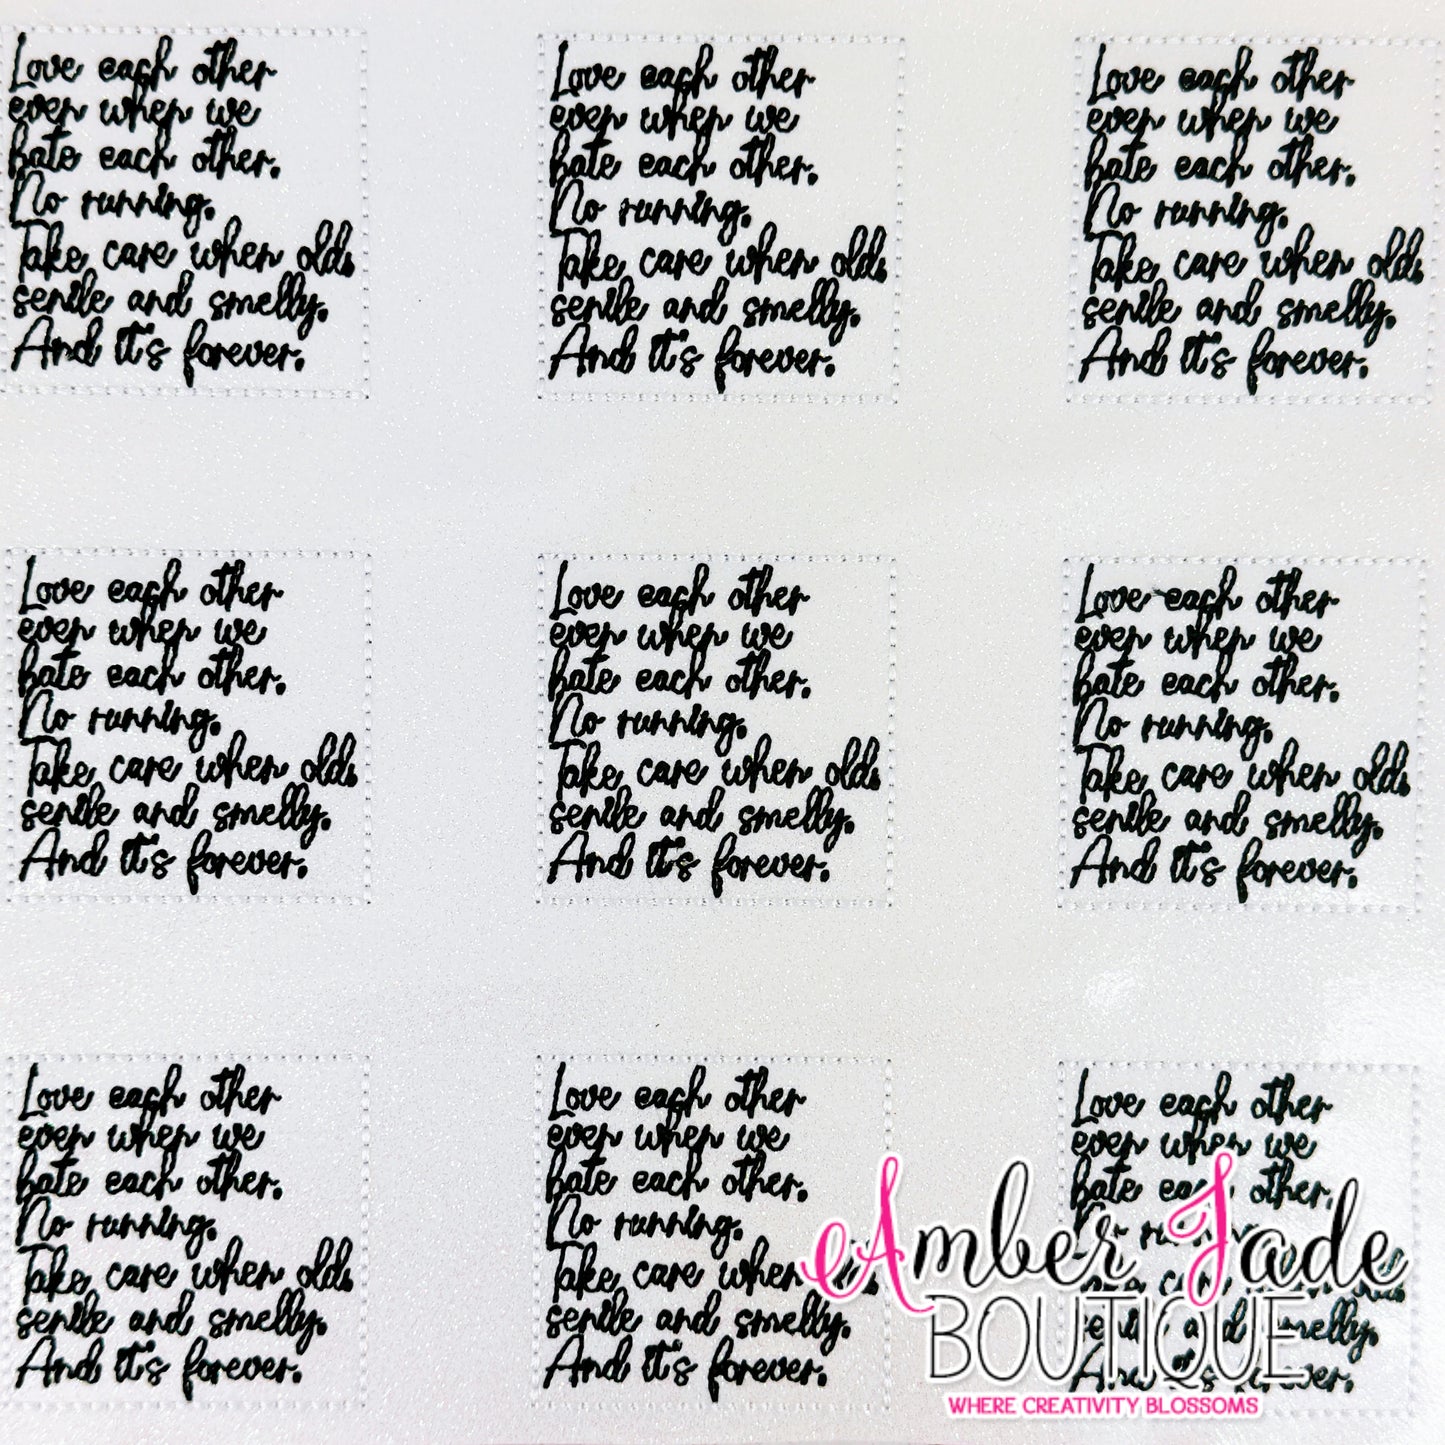 Love each other
even when we
hate each other.
No running.
Take care when old,
senile and smelly.
And it's forever.
Love each other
even when we
hate each other.
No running.
Take care when old,
senile and smelly.
And it's forever.
Love each other
even when we
hate each other.
No running.
Take care when old,
senile and smelly.
And it's forever.
Love each other
even when we
hate each other.
No running.
Take care when old,
senile and smelly.
And it's forever.
Love each other
even when we
hate each other.
No running.
Take care when old,
senile and smelly.
And it's forever.
Love each other
even when we
hate each other.
No running.
Take care when old,
senile and smelly.
And it's forever.
Love each other
even when we
hate each other.
No running.
Take care when old,
senile and smelly.
And it's forever.
Love each other
even when we
hate each other.
No running.
Take care when old,
senile and smelly.
And it's forever.
Love each other
even when we
hate each other.
and smelly.
And it's forever.
Amber Jade
BOUTIQUE
WHERE CREATIVITY BLOSSOMS